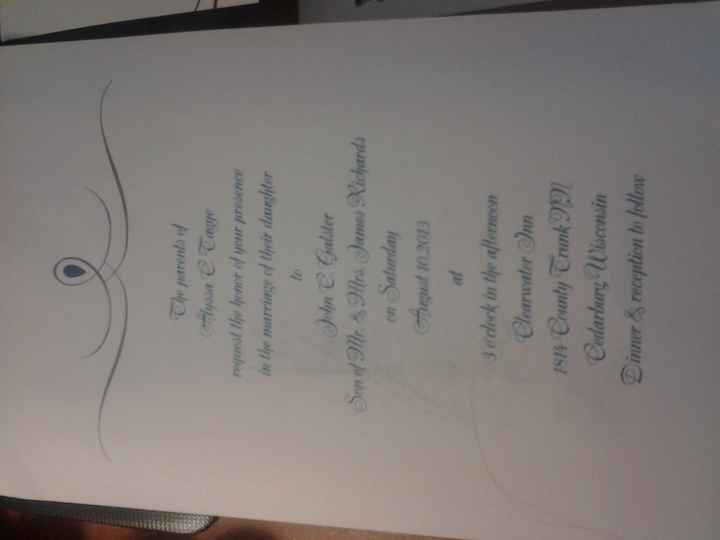 The parents of
Alyssa C Tagge
request the honor of your presence
in the marriage of their daughter
to
John C. Galster
Son of Mr. & Mrs. James Richards
on Saturday
August 10, 2013
at
3 o'clock in the afternoon
Clearwater Inn
1814 County Trunk NN
Cedarburg, Wisconsin
Dinner & reception to follow